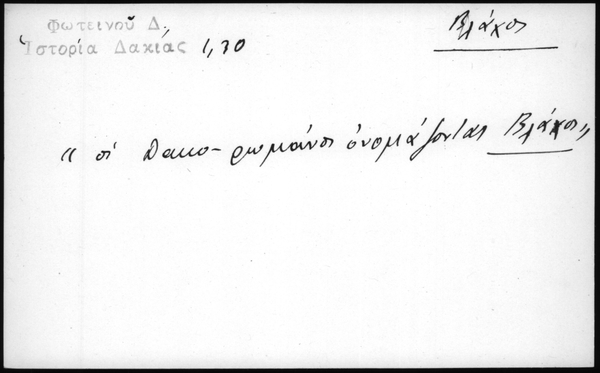 Φωτεινοῦ Δ,
Ἱστορία Δακίας 1,30
Βλάχοι
« οἱ Δακο-ρωμάνοι ὀνομάζονται Βλάχοι»